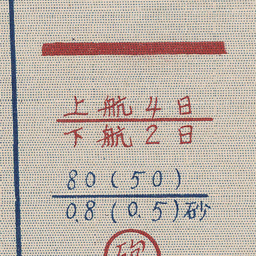 上航4日
下航2日
80(50)
0.8(0.5)砂